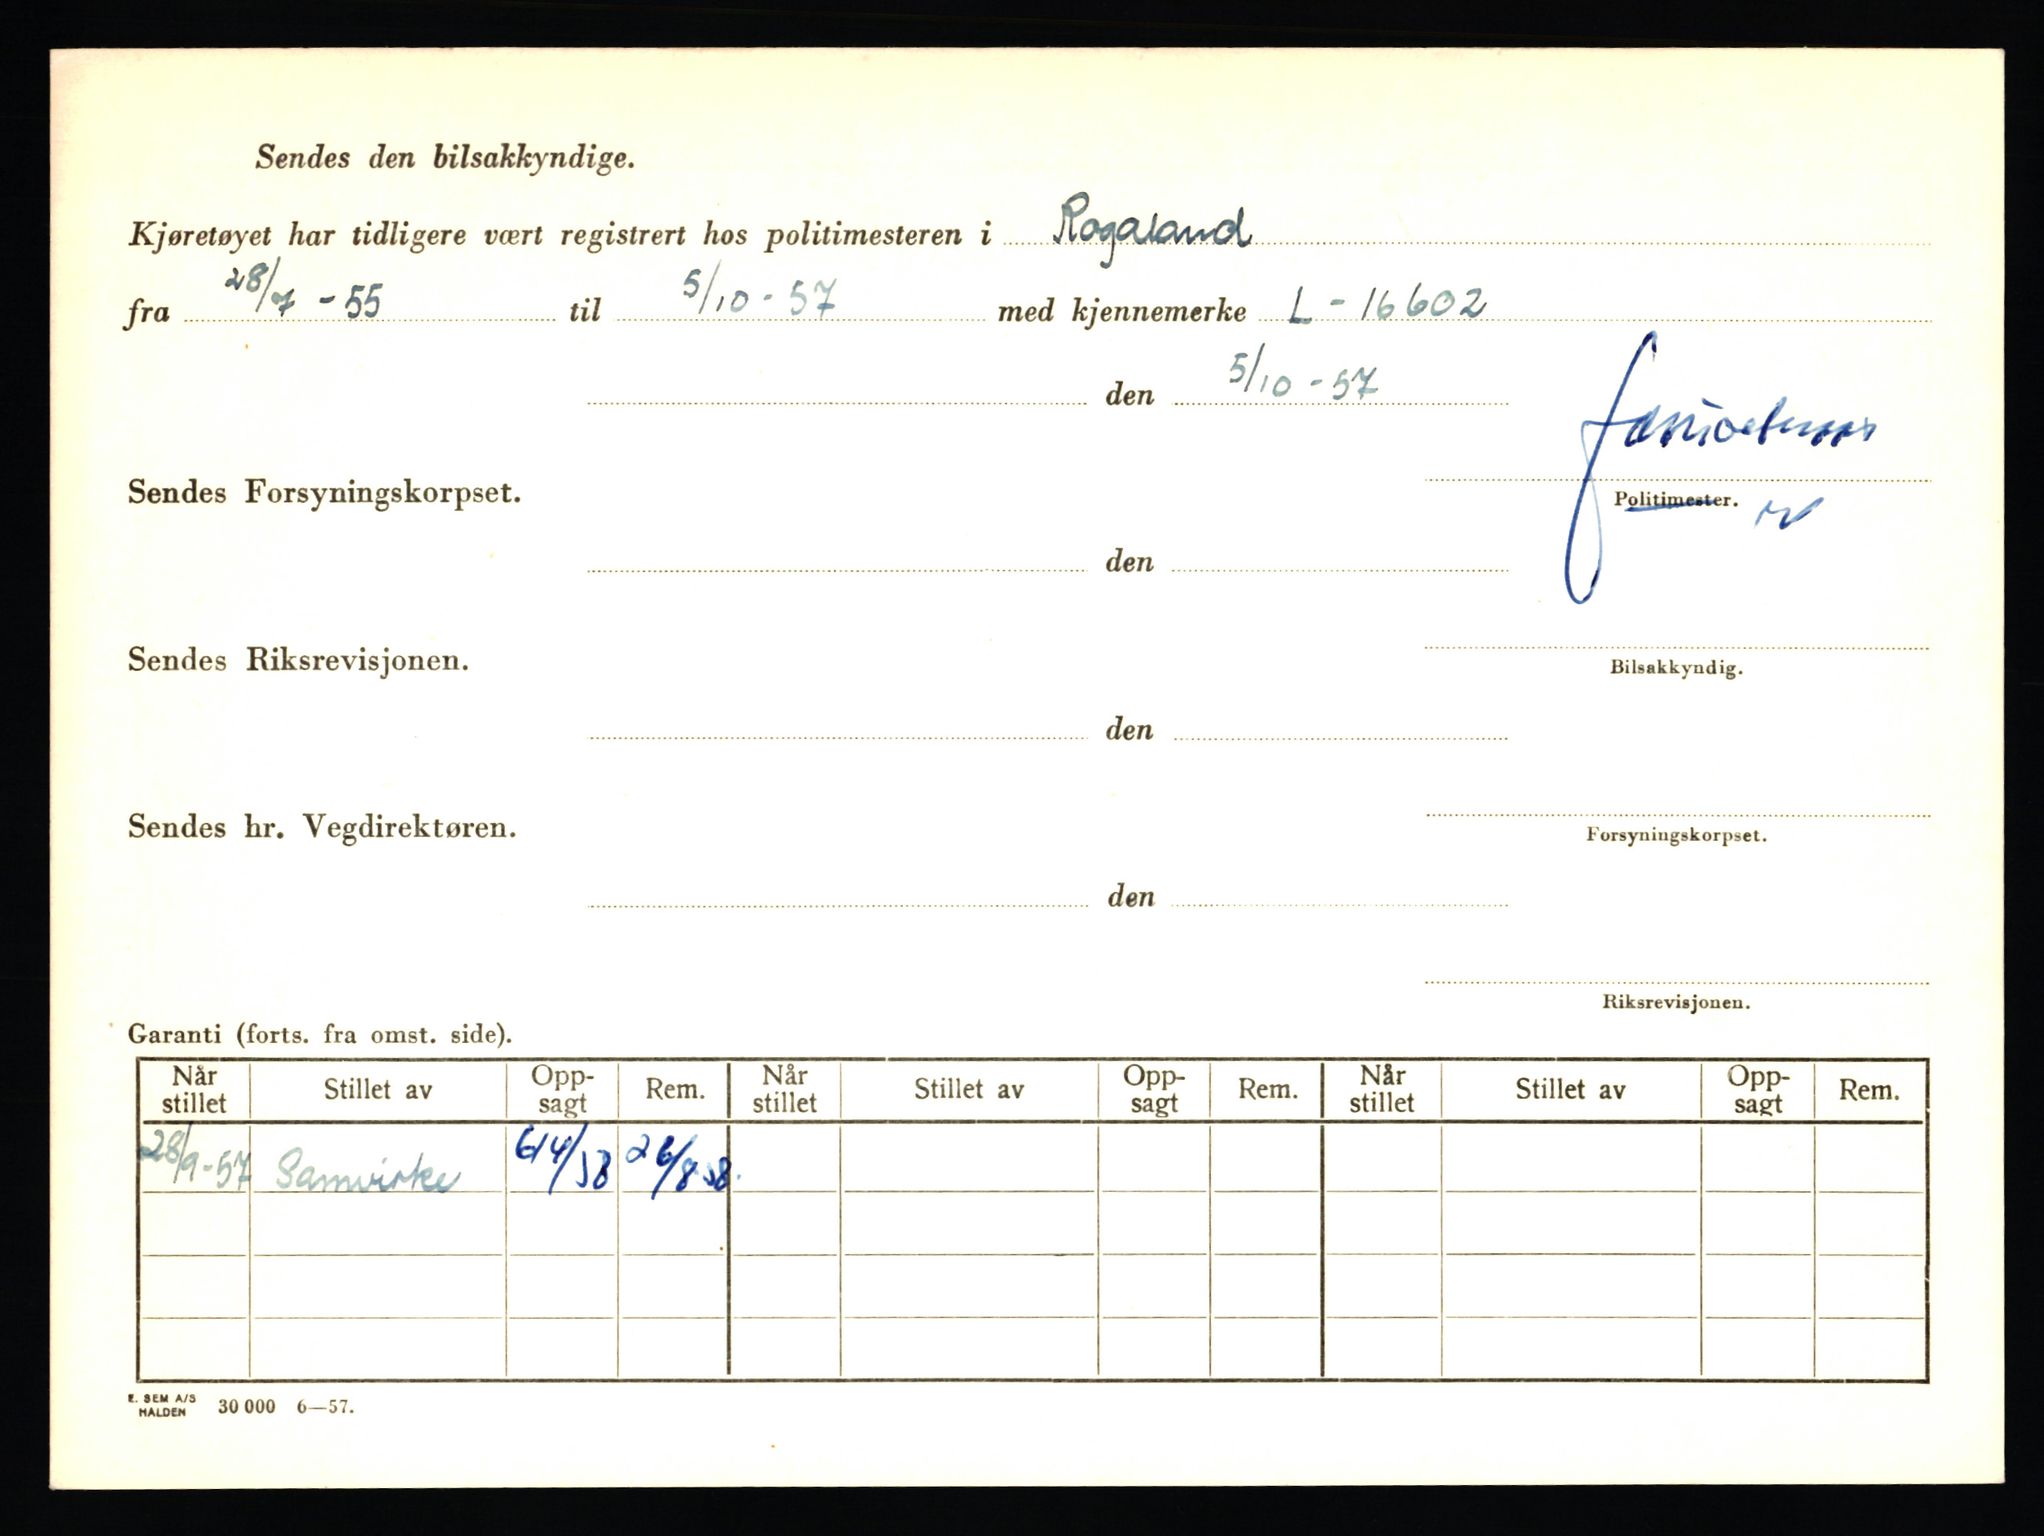 Sendes den bilsakkyndige.
Kjøretøyet har tidligere vært registrert hos politimesteren i Rogaland
fra 28/7 - 55 til 5/10 - 57 med kjennemerke L - 16602
den 5/10 - 57
Sendes Forsyningskorpset.
Politimester.
den
Sendes Riksrevisjonen.
Bilsakkyndig.
den
Sendes hr. Vegdirektøren.
Forsyningskorpset.
den
Riksrevisjonen.
Garanti (forts. fra omst. side).
Når stillet Stillet av Opp-sagt Rem. Når stillet Stillet av Opp-sagt Rem. Når stillet Stillet av Opp-sagt Rem.
28/9-57 Samvirke 6/4/58 26/8 58.
E. SEM A/S
HALDEN 30 000 6—57.